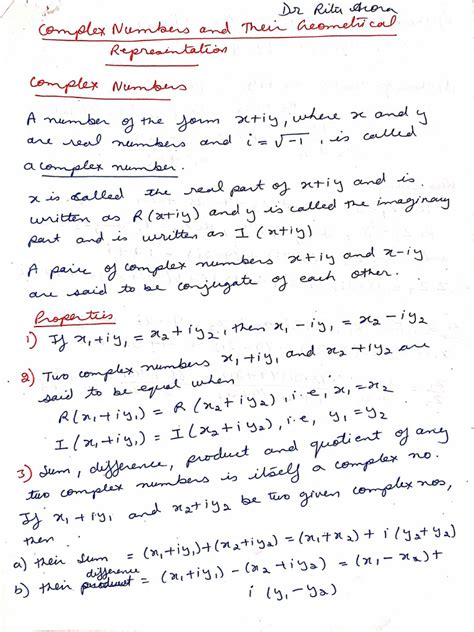 Dr Rita Arora
Complex Numbers and Their Geometrical
Representation
Complex Numbers
A number of the form x+iy, where x and y
are real numbers and i = √-1, is called
a complex number.
x is called the real part of x+iy and is
written as R(x+iy) and y is called the imaginary
part and is written as I(x+iy)
A pair of complex numbers x+iy and x-iy
are said to be conjugate of each other.
Properties
1) If x₁+iy₁ = x₂+iy₂, then x₁-iy₁ = x₂-iy₂
2) Two complex numbers x₁+iy₁ and x₂+iy₂ are
said to be equal when
R(x₁+iy₁) = R(x₂+iy₂), i.e, x₁=x₂
I(x₁+iy₁) = I(x₂+iy₂), i.e, y₁=y₂
3) Sum, difference, product and quotient of any
two complex numbers is itself a complex no.
If x₁+iy₁ and x₂+iy₂ be two given complex nos,
then
a) their sum = (x₁+iy₁)+(x₂+iy₂) = (x₁+x₂)+i(y₁+y₂)
b) their difference = (x₁+iy₁)-(x₂+iy₂) = (x₁-x₂)+
i(y₁-y₂)